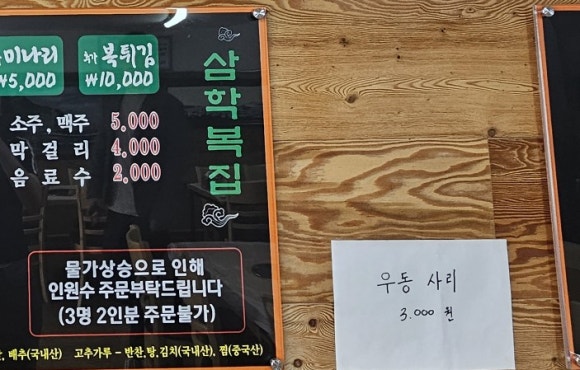 미나리
₩5,000
추가 복튀김
₩10,000
삼학복집
소주, 맥주 5,000
막걸리 4,000
음료수 2,000
물가상승으로 인해
인원수 주문부탁드립니다
(3명 2인분 주문불가)
배추(국내산) 고추가루 - 반찬,탕,김치(국내산), 찜(중국산)
우동 사리
3.000 원